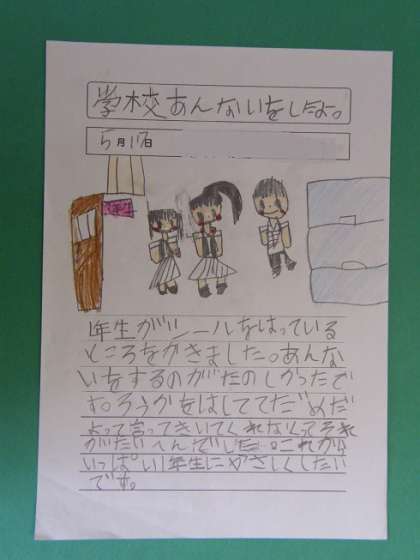 学校あんないをしたよ。
5月17日
1年生
1年生がシールをはっている
ところをかきました。あんな
いをするのがたのしかったで
す。ろうかをはしててだめだ
よって言ってきいてくれなくってそれ
がたいへんでした。これから
いっぱい1年生にやさしくしたい
です。